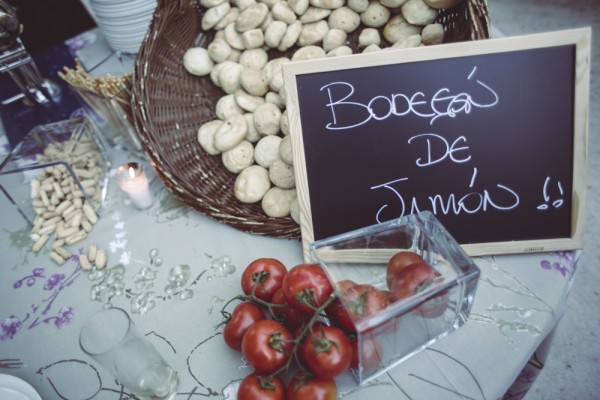 BODEGÓN
DE
JAMÓN !!